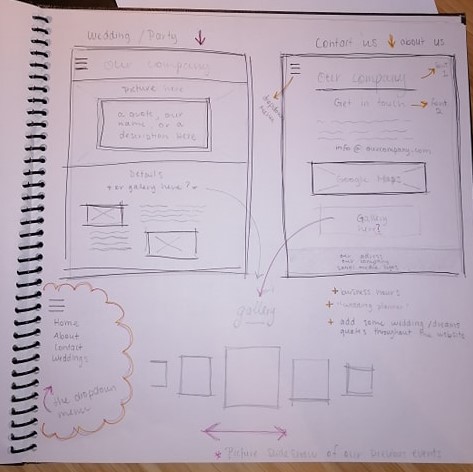 Wedding / Party
Our Company
Picture here
a quote, our
name or a
description here
Details
+ or gallery here?
Contact us
about us
Our Company
font
1
Get in touch
font
2
dropdown
menu
info@ourcompany.com
Google Maps
Gallery
here?
our adress
our company
social media logos
+ business hours
+ "wedding planner"
+ add some wedding/dreams
quotes throughout the website
gallery
Home
About
Contact
Weddings
the dropdown
menu
* Picture slideshow of our previous events